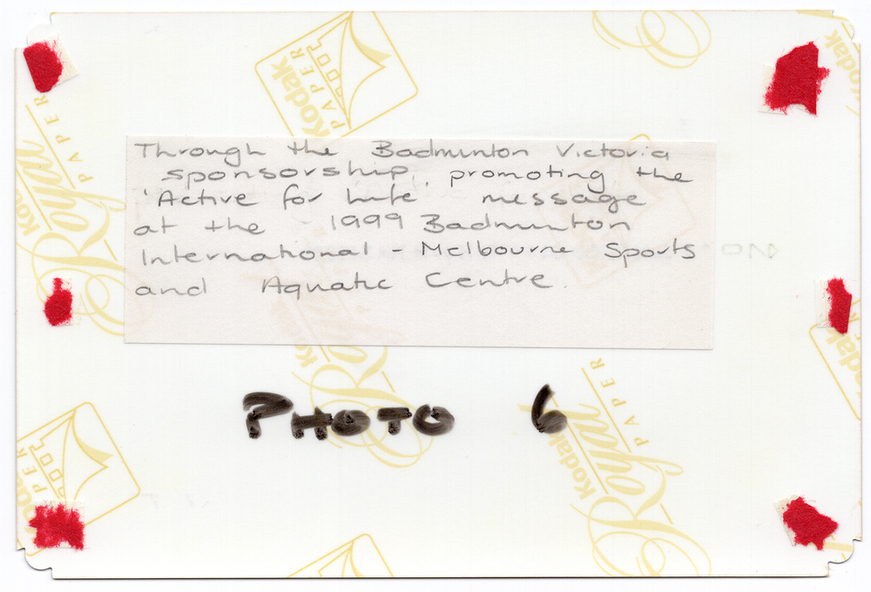 Through the Badminton Victoria
sponsorship, promoting the
'Active for Life' message
at the 1999 Badminton
International - Melbourne Sports
and Aquatic Centre.
PHOTO 6
Kodak
PAPER
Kodak
Royal
PAPER
Kodak
Royal
PAPER
Kodak
Royal
PAPER
Kodak
PAPER